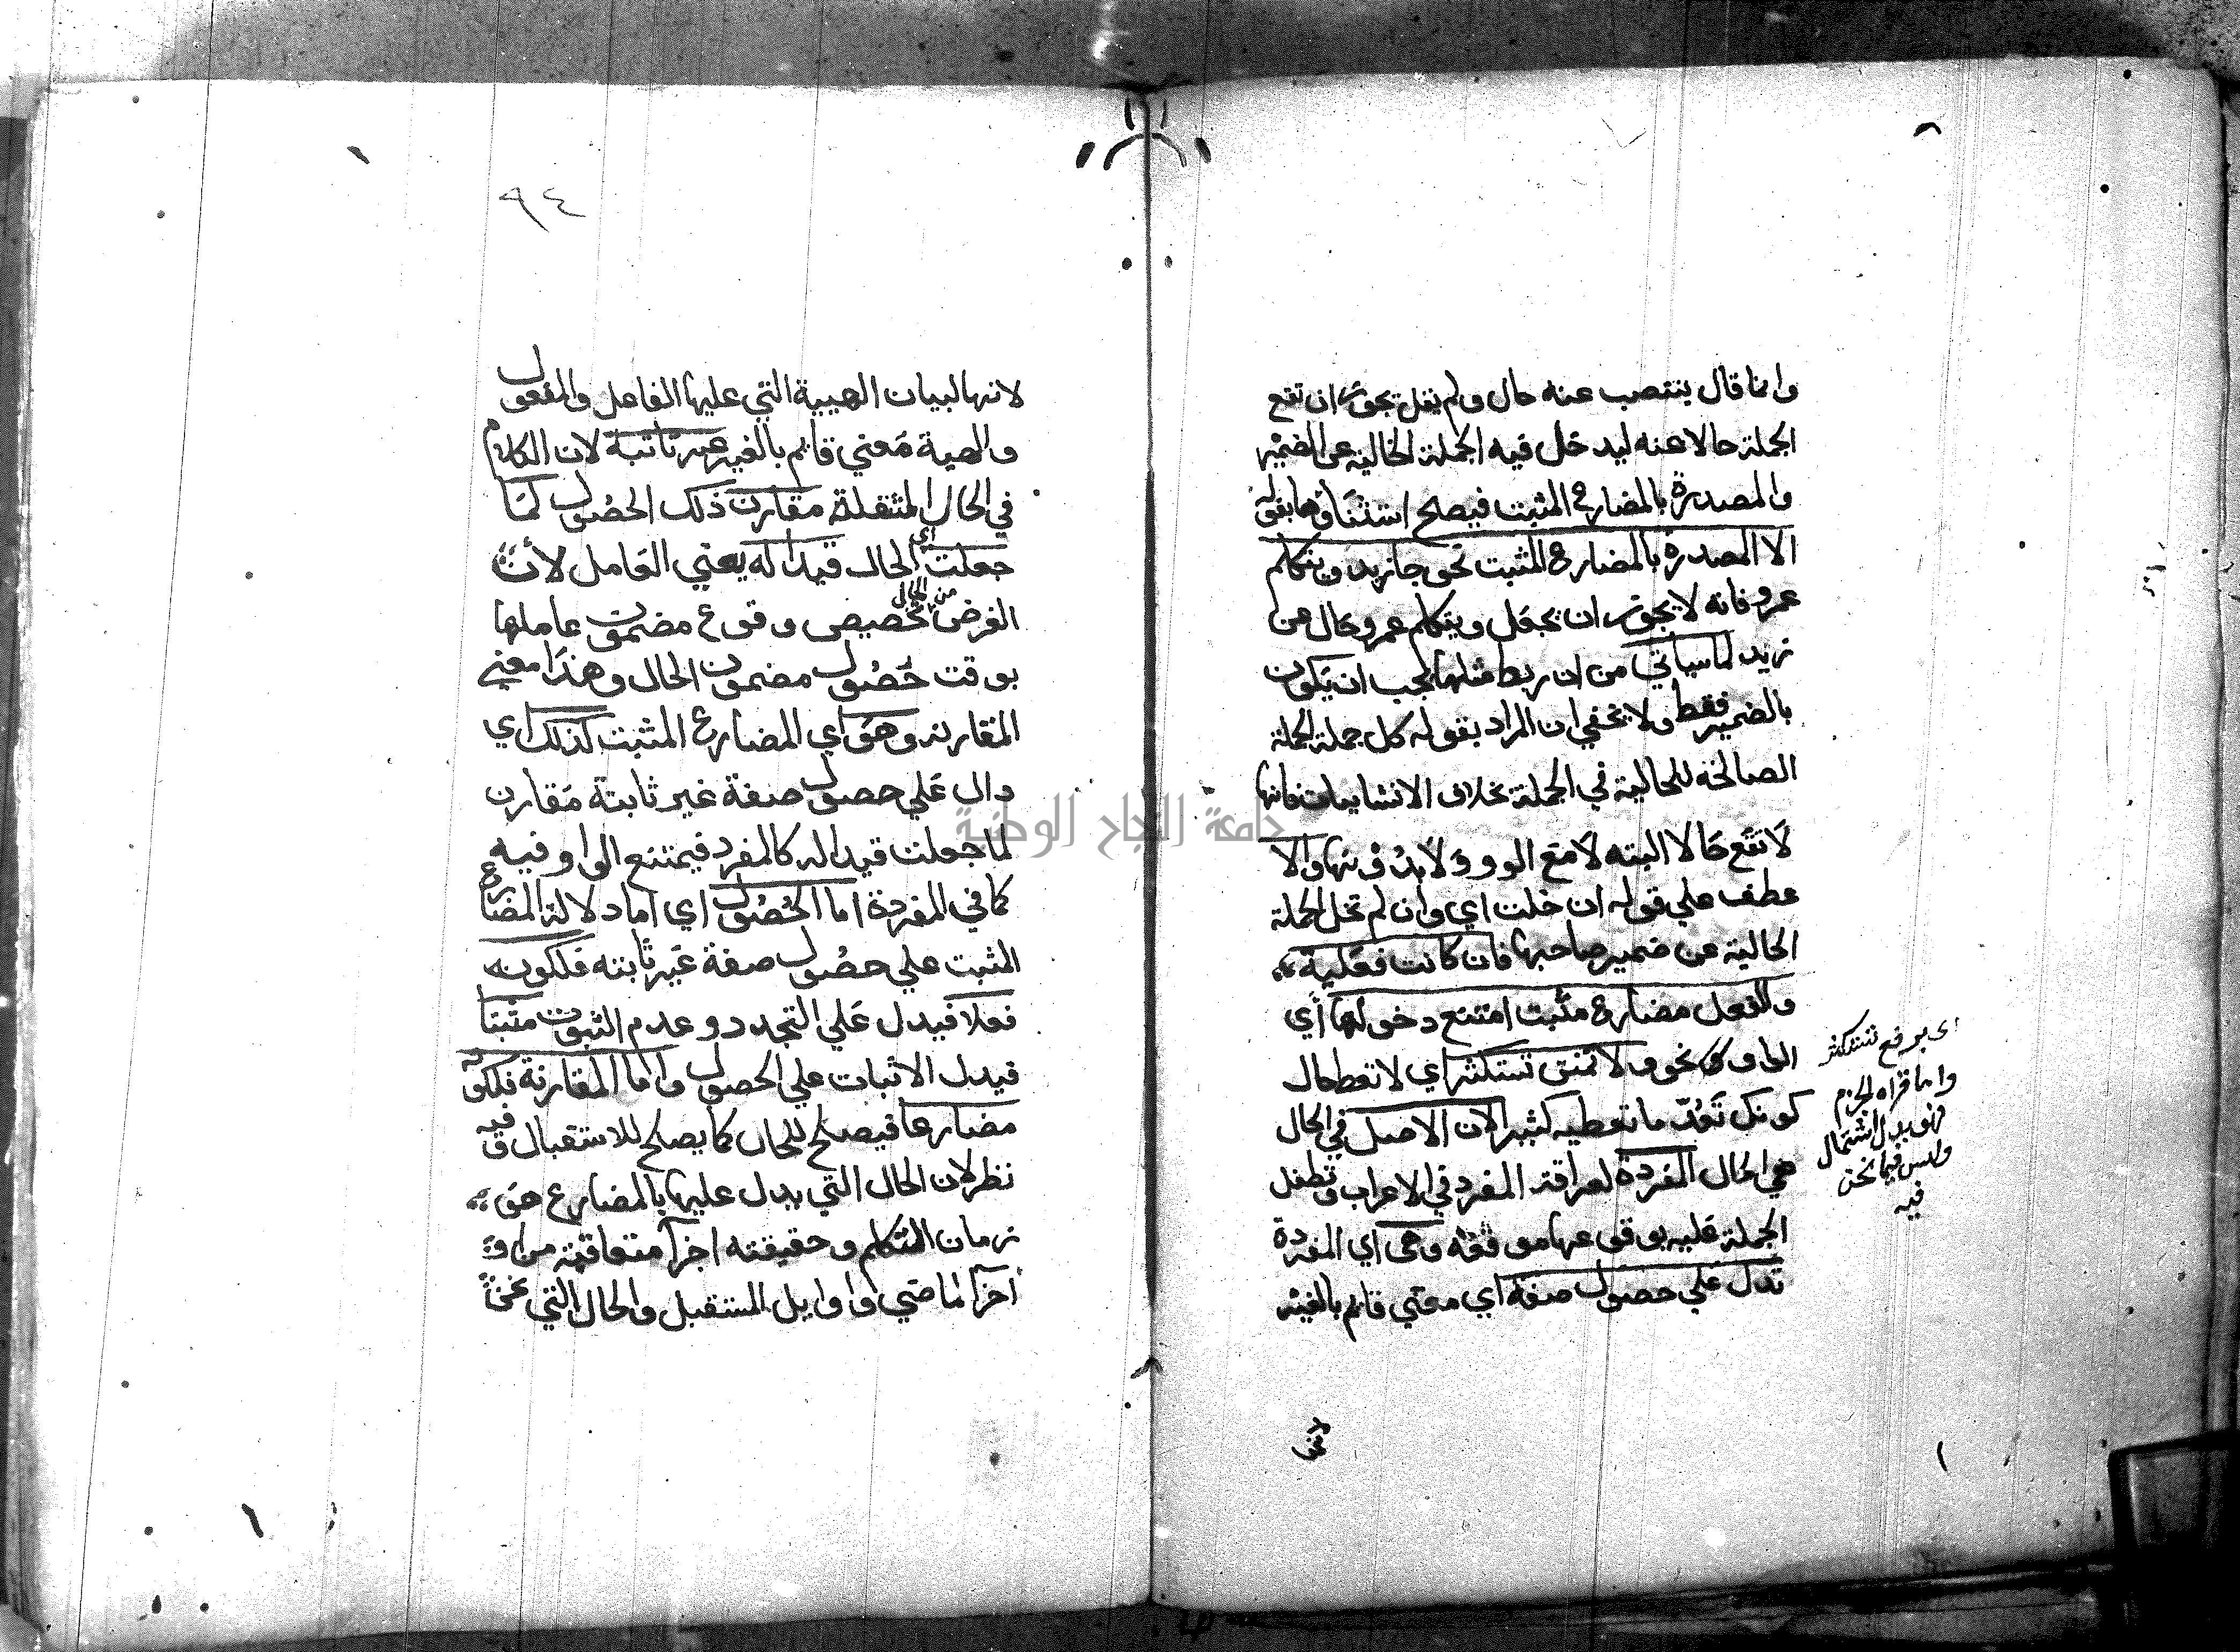 وانما قال ينتصب عنه حال ولم يقل يجوز ان تقع
الجملة حالا عنه ليدخل فيه الجملة الخالية عن الضمير
والمصدرة بالمضارع المثبت فيصلح استثناؤها بقوله
الا المصدرة بالمضارع المثبت نحو جا زيد ويتكلم
عمرو فانه لا يجوز ان يجعل ويتكلم عمرو حال من
زيد لما سياتي من ان ربط مثلها يجب ان يكون
بالضمير فقط ولا يخفي ان المراد بقوله كل جملة الجملة
الصالحة للحالية في الجملة بخلاف الانشاييات فانها
لا تقع حالا البته لا مع الوو ولا بدونها والا
عطف علي قوله ان خلت اي وان لم تخل الجملة
الحالية عن ضمير صاحبها فان كانت فعلية
والفعل مضارع مثبت امتنع دخولها اي
الواو نحو ولا تمنن تستكثر اي لا تعط حال
كونك تعدّ ما تعطيه كثيرا لان الاصل في الحال
هي الحال المفردة لعراقة المفرد في الاعراب وتطفل
الجملة عليه بوقوعها موقعه وهي اي المفردة
تدل علي حصول صفة اي معني قايم بالغير
اي برفع تستكثر
واما قراه الجزم
فهو بدل اشتمال
وليس فيما نحن
فيه
٩٤
لانها لبيان الهيية التي عليها الفاعل والمفعول
والهية معني قايم بالغير غير ثابتة لان الكلام
في الحال المنتقلة مقارن ذلك الحصول لما
جعلت اي الحال قيدا له يعني العامل لأن
الغرض من الحال تخصيص وقوع مضمون عاملها
بوقت حصول مضمون الحال وهذا معني
المقارنه وهو اي المضارع المثبت كذلك اي
دال علي حصول صفة غير ثابتة مقارن
لما جعلت قيدا له كالمفرد فيمتنع الواو فيه
كما في المفردة اما الحصول اي اما دلالة المضارع
المثبت علي حصول صفة غير ثابته فلكونه
فعلا فيدل علي التجدد وعدم الثبوت مثبتا
فيدل الاثبات علي الحصول واما المقارنة فلكونه
مضارعا فيصلح للحال كما يصلح للاستقبال وفيه
نظر لان الحال التي يدل عليها بالمضارع هو
زمان التكلم وحقيقته اجزآ متعاقبة من اواخر
آخر الماضي واوايل المستقبل والحال التي نحن
جامعة النجاح الوطنية